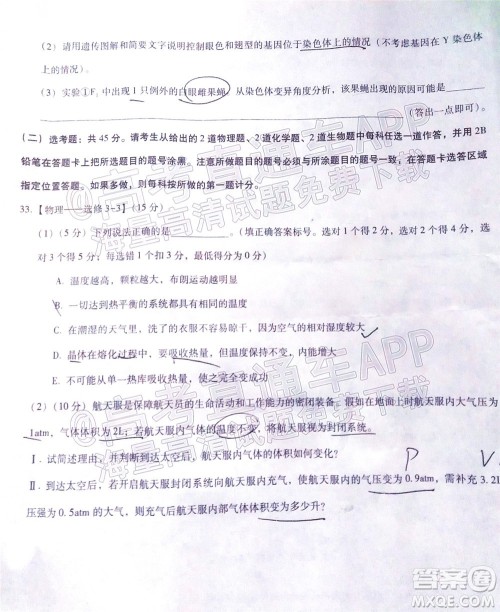 (2) 请用遗传图解和简要文字说明控制眼色和翅型的基因位于染色体上的情况（不考虑基因在 Y 染色
体上的情况）。
(3) 实验①F₁ 中出现 1 只例外的白眼雌果蝇，从染色体变异角度分析，该果蝇出现的可能原因是
（答出一点即可）。
（二）选考题：共 45 分。请考生从给出的 2 道物理题、2 道化学题、2 道生物题中每科任选一道作答，并用 2B
铅笔在答题卡上把所选题目的题号涂黑。注意所做题目的题号必须与所涂题目的题号一致，在答题卡选答区域
指定位置答题。如果多做，则每科按所做的第一题计分。
33.【物理——选修 3-3】（15 分）
(1)（5 分）下列说法正确的是______（填正确答案标号。选对 1 个得 2 分，选对 2 个得 4 分，选
对 3 个得 5 分，每选错 1 个扣 3 分，最低得分为 0 分）
A. 温度越高，颗粒越大，布朗运动越明显
B. 一切达到热平衡的系统都具有相同的温度
C. 在潮湿的天气里，洗了的衣服不容易晾干，因为空气的相对湿度较大
D. 晶体在熔化过程中，要吸收热量，但温度保持不变，内能增大
E. 不可能从单一热库吸收热量，使之完全变成功
(2)（10 分）航天服是保障航天员的生命活动和工作能力的密闭装备。假如在地面上时航天服内大气压为
1atm，气体体积为 2L；若航天服内气体的温度不变，将航天服视为封闭系统。
Ⅰ. 试简述理由，并判断到达太空后，航天服内气体的体积如何变化？
P V
Ⅱ. 到达太空后，若开启航天服封闭系统向航天服内充气，使航天服内的气压变为 0.9atm，需补充 3.2L
压强为 0.5atm 的大气，则充气后航天服内部气体体积变为多少升？
高考直通车APP
海量高清试题免费下载
高考直通车APP
海量高清试题免费下载
答案圈
MXQE.COM